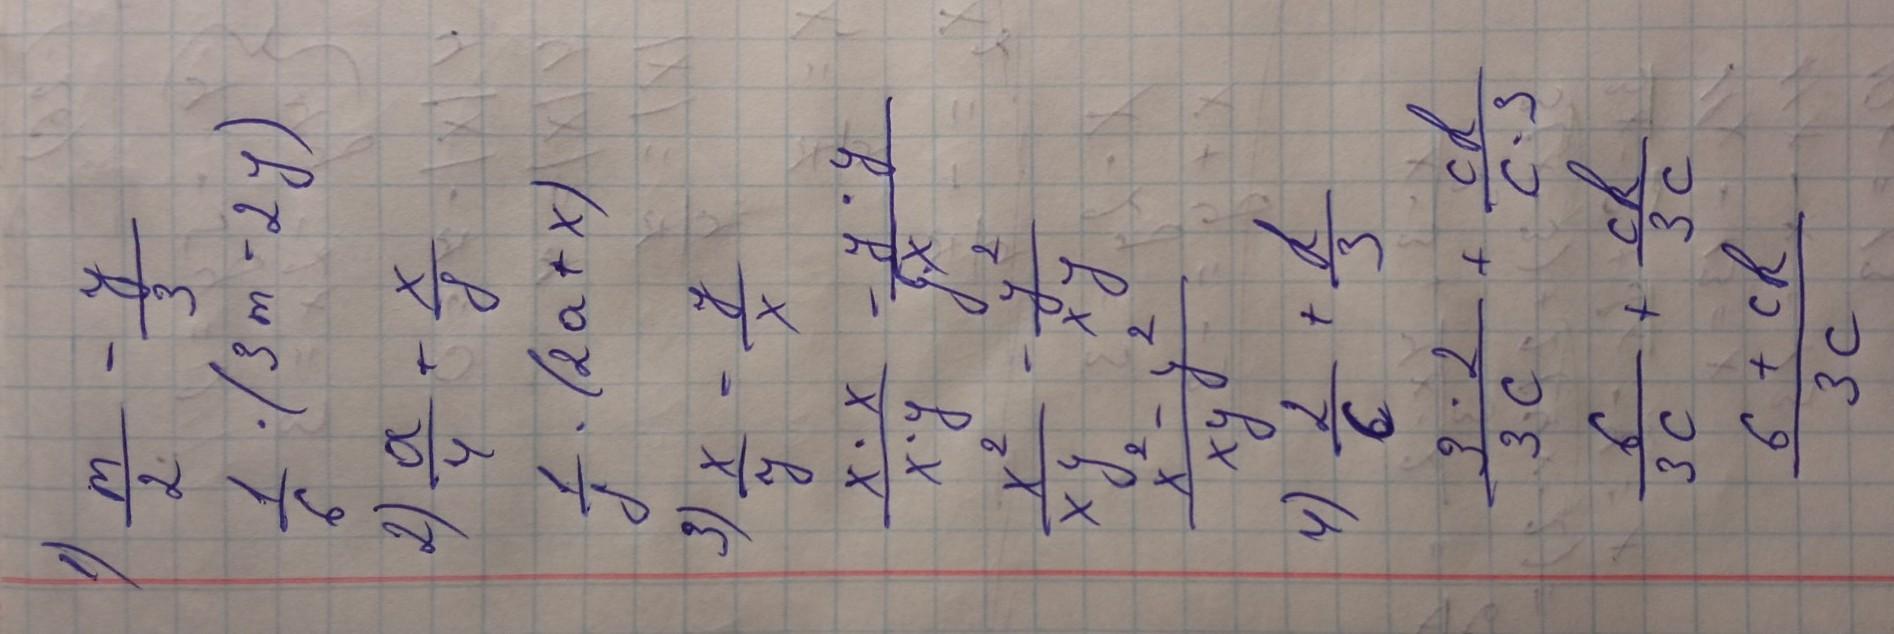 1) m/2 - y/3
1/6 · (3m - 2y)
2) a/4 + x/8
1/y · (2a + x)
3) x/y - y/x
x·x/x·y - y·y/y·x
x²/xy - y²/xy
x² - y²/xy
4) 2/6 + k/3
3·2/3c + ck/c·3
6/3c + ck/3c
6 + ck/3c